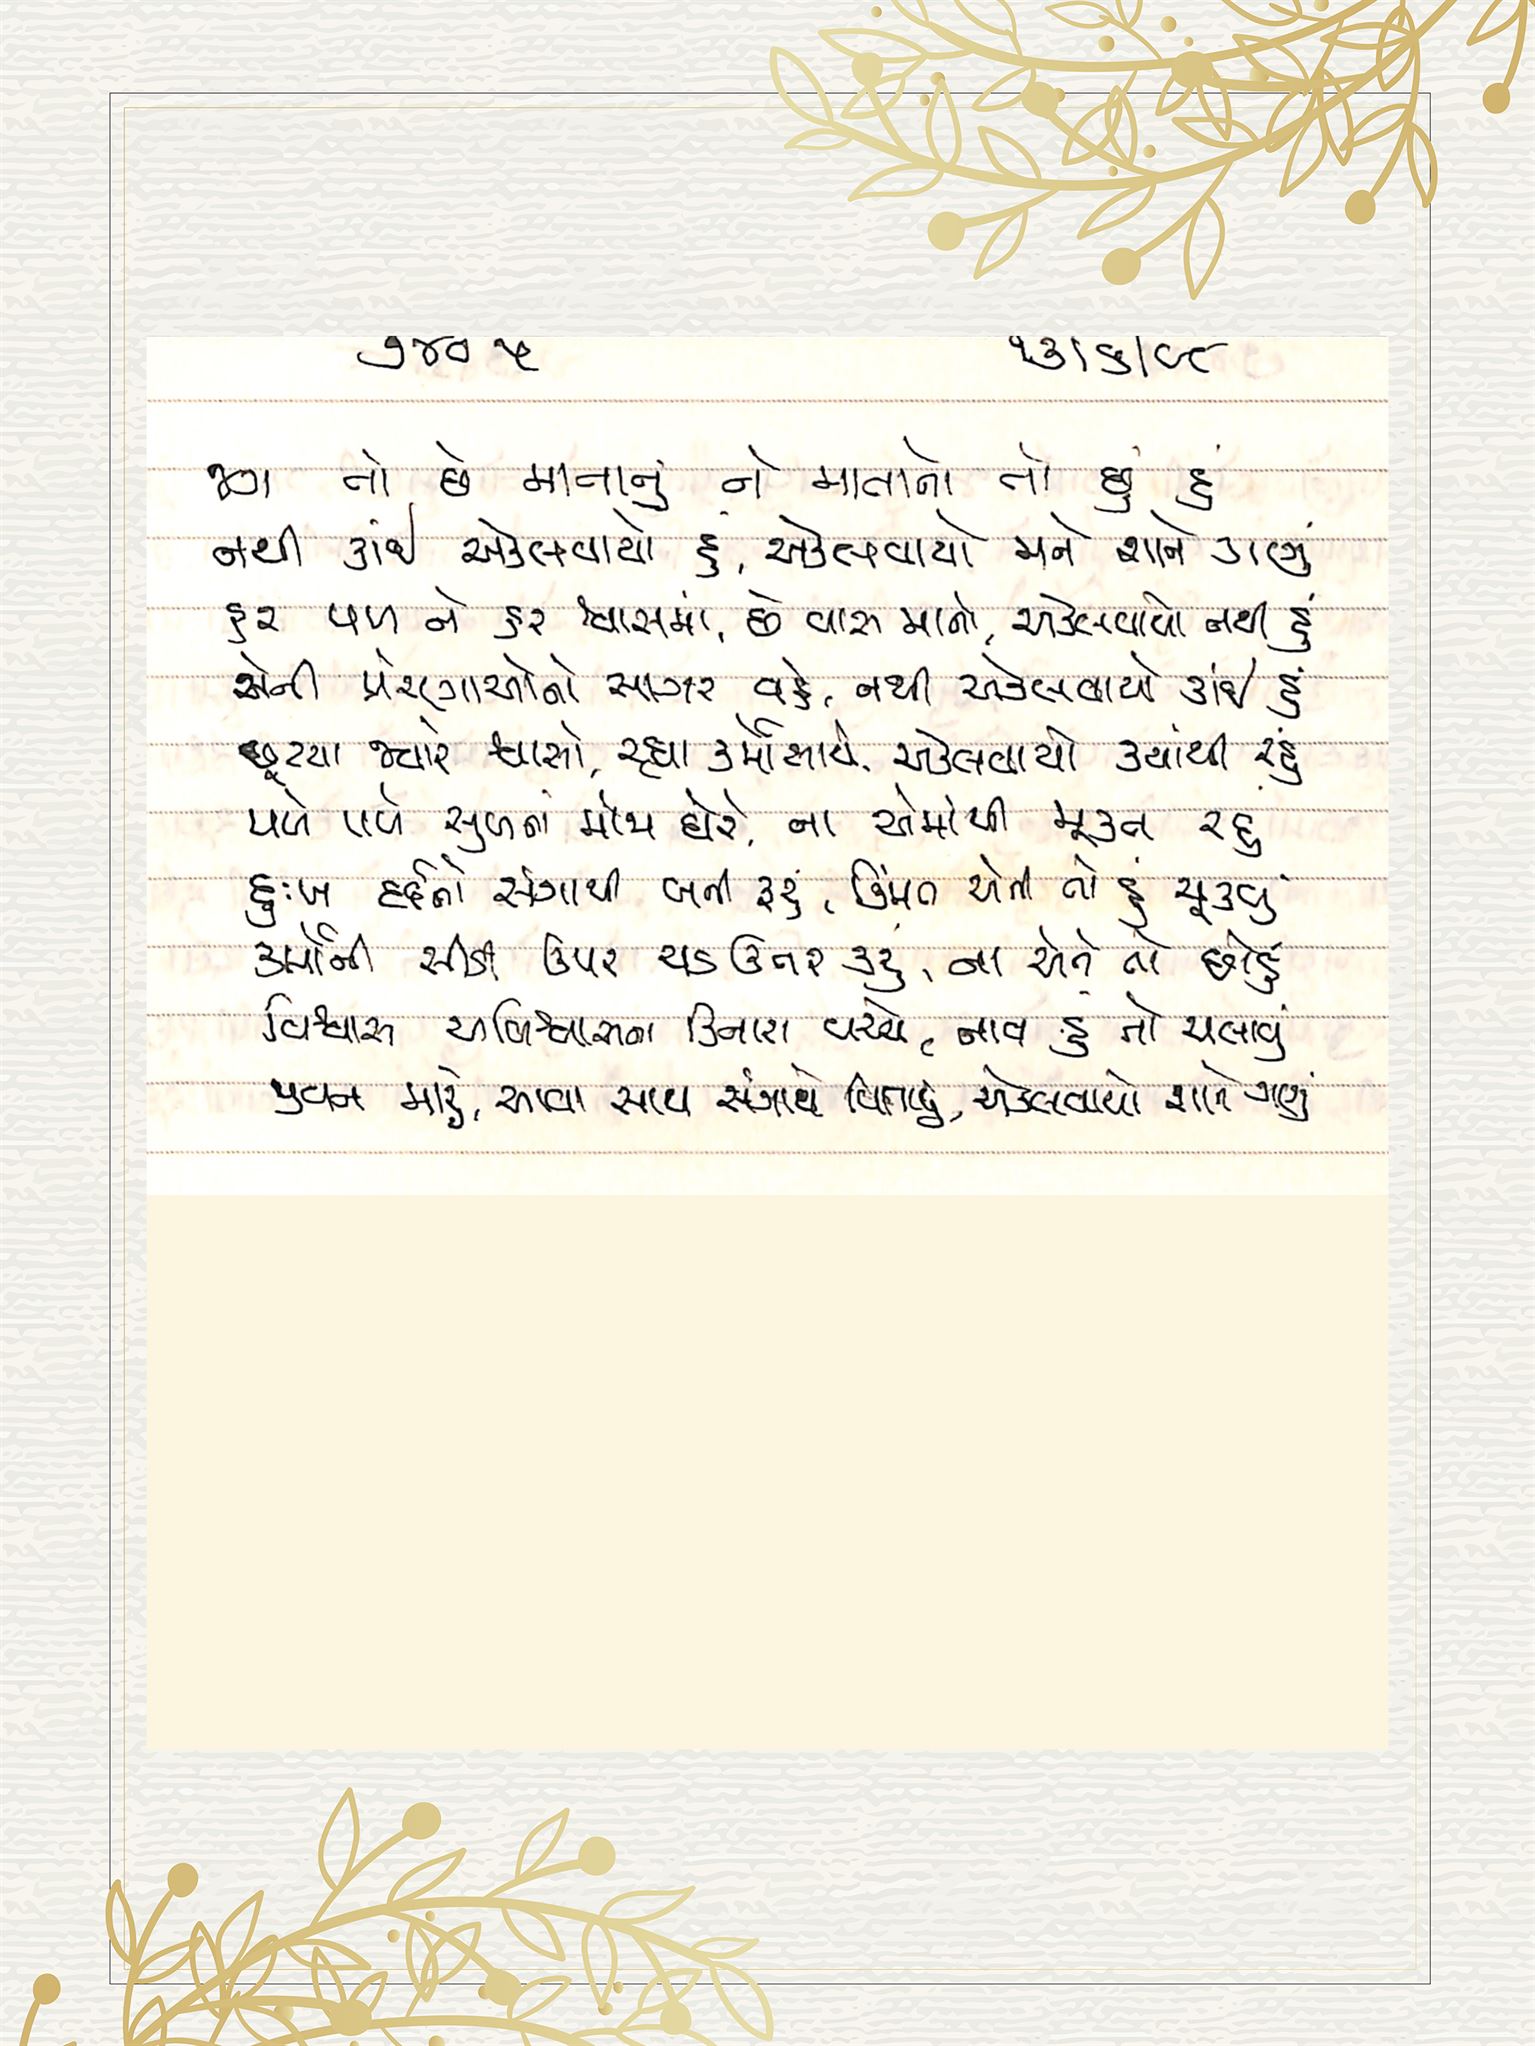 ૭૪૦૫ ૧૩/૬/૯૮
જગ તો છે માતાનું ને માતાનો તો છું હું
નથી કાંઈ એકલવાયો હું, એકલવાયો મને શાને ગણું
હર પળ ને હર શ્વાસમાં, છે વાસ માનો, એકલવાયો નથી હું
એની પ્રેરણાઓનો સાગર વહે, નથી એકલવાયો કાંઈ હું
છૂટયા જ્યારે શ્વાસો, રહ્યા કર્મો સાથે, એકલવાયો ક્યાંથી રહું
પળે પળે સુખનાં મોજા દોરે, ના એમાંથી મૂક્ત રહું
દુઃખ દર્દનો સંગાથી બની ફરું, કિંમત એની તો હું ચૂકવું
કર્મોની સીડી ઉપર ચડ ઉતર કરું, ના એને તો છોડું
વિશ્વાસ અવિશ્વાસના કિનારા વચ્ચે, નાવ હું તો ચલાવું
જીવન મારું, આવા સાથ સંગાથે વિતાવું, એકલવાયો શાને ગણું